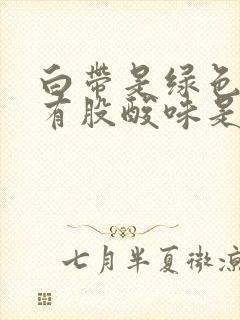 白带是绿色
有股酸味是
七月半夏微凉